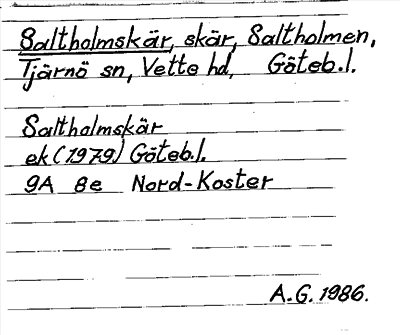 Saltholmskär, skär, Saltholmen,
Tjärnö sn, Vette hd, Göteb.l.
Saltholmskär
ek (1979) Göteb.l.
9A 8e Nord-Koster
A.G. 1986.